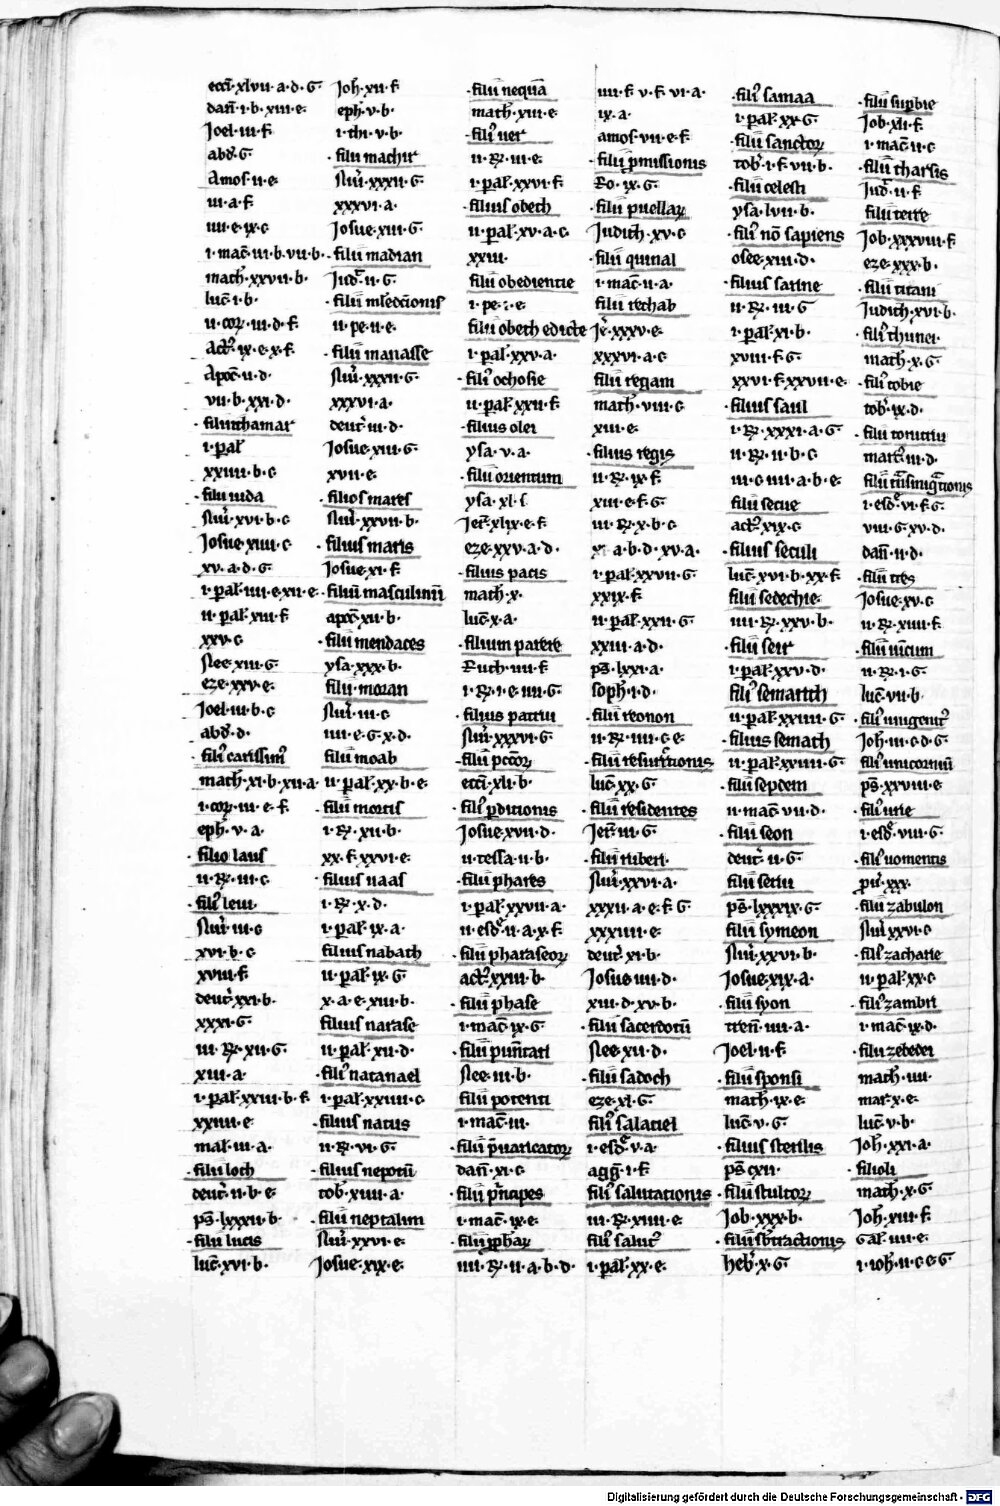 ecci · xlvii · a · d · G
dan̄ · i · b · xiii · e
Joel · iii · f
abd · G
Amos · ii · e
iii · a · f
iiii · e · ix · c
i · mac̄ · iii · b · vii · b
math · xxvii · b
luc̄ · i · b
ii · cor · iii · d · f
Act · ix · e · x · f
Apoc̄ · ii · d
vii · b · xxi · d
filii ithamar
i · pal
xxiiii · b · c
filii iuda
Nūi · xvi · b · c
Josue · xiiii · c
xv · a · d · G
i · pal · iiii · e · xii · e
ii · pal · xiii · f
xxv · c
Nee · xiii · G
eze · xxv · e
Joel · iii · b · c
abd · d
fili carissimi
math · xi · b · xii · a
i · cor · iii · e · f
eph · v · a
filio laus
ii · R · iii · c
fili leui
Nūi · iii · c
xvi · b · c
xviii · f
deut · xxi · b
xxxi · G
iii · R · xii · G
xiii · a
i · pal · xxiii · b · f
xxiiii · e
mal · iii · a
filii loth
deut · ii · b · e
ps̄ · lxxxii · b
filii lucis
luc̄ · xvi · b
Joh · xii · f
eph · v · b
i · th · v · b
filii machir
Nūi · xxxii · G
xxxvi · a
Josue · xiii · G
filii madian
Jud · ii · G
filii mledictionis
ii · pe · ii · e
filii manasse
Nūi · xxxii · G
xxxvi · a
deut · iii · d
Josue · xiii · G
xvii · e
filios mares
Nūi · xxvii · b
filius maris
Josue · xi · f
filiū masculinū
apoc̄ · xii · b
filii mendaces
ysa · xxx · b
filii moran
Nūi · iii · c
iiii · e · G · x · d
filii moab
ii · pal · xx · b · e
filii mortis
i · R · xii · b
xx · f · xxvi · e
filius naas
i · R · x · d
i · pal · ix · a
filius nabath
ii · pal · ix · G
x · a · e · xiii · b
filius narase
ii · pal · xii · d
fili natanael
i · pal · xxiiii · c
filius natus
ii · R · vi · G
filius nepotū
tob · xiiii · a
filii neptalim
Nūi · xxvi · e
Josue · xix · e
filii nequā
math · xiii · e
fili ner
ii · R · iii · e
i · pal · xxvi · f
filius obeth
ii · pal · xv · a · c
xxiii
filii obedientie
i · pe · i · e
filii obeth edicte
i · pal · xxv · a
fili ochosie
ii · pal · xxii · f
filius olei
ysa · v · a
filii orientum
ysa · xl · f
Jer · xlix · e · f
eze · xxv · a · d
filius pacis
math · x
luc̄ · x · a
filium parere
Ruth · iiii · f
i · R · i · e · iiii · G
filius patrui
Nūi · xxxvi · G
filii pccōr
ecci · xli · b
fili pditionis
Josue · xvii · d
ii · tessa · ii · b
filii phares
i · pal · xxvii · a
ii · esd · ii · a · x · f
filii phariseor
act · xxiii · b
filii phase
i · mac̄ · ix · G
filii punitari
Nee · iii · b
filii potenti
i · mac̄ · iii
filii puaricator
dan̄ · xi · c
filii principes
i · mac̄ · ix · e
filii pphar
iiii · R · ii · a · b · d
iiii · f · v · f · vi · a
ix · a
amos · vii · e · f
filii pmissionis
Ro · ix · G
filii puellar
Judith · xv · c
filii quinal
i · mac̄ · ii · a
filii rechab
Jer · xxxv · e
xxxvi · a · c
filii regam
math · viii · c
xiii · e
filius regis
ii · R · ix · f
xiii · e · f · G
iii · R · x · b · c
xi · a · b · d · xv · a
i · pal · xxvii · G
xxix · f
ii · pal · xxii · G
xxiii · a · d
ps̄ · lxxi · a
soph · i · d
filii reonon
ii · R · iiii · c · e
filii resurrectionis
luc̄ · xx · G
filii residentes
Jer · iii · G
filii ruben
Nūi · xxvi · a
xxxii · a · e · f · G
xxxiiii · e
deut · xi · b
Josue iiii · d
xiii · d · xv · b
filii sacerdotū
Nee · xii · d
filii sadoch
eze · xl · G
fili salatiel
i · esd · v · a
agg · i · f
fili salutationis
iii · R · xiiii · e
fili salut
i · pal · xx · e
fili samaa
i · pal · xx · G
filii sanctor
tob · i · f · vii · b
filii celesti
ysa · lvii · b
fili nō sapiens
osee · xiii · d
filius satine
ii · R · iii · G
i · pal · xi · b
xviii · f · G
xxvi · f · xxvii · e
filius saul
i · R · xxxi · a · G
ii · R · ii · b · c
iii · c · iiii · a · b · e
filii secue
act · xix · c
filius seculi
luc̄ · xvi · b · xx · f
filii sedechie
iiii · R · xxv · b
filii seir
i · pal · xxv · d
fili semarith
ii · pal · xxiiii · G
filius semath
ii · pal · xxiiii · G
filii septem
ii · mac̄ · vii · d
filii seon
deut · ii · G
filii seruı
ps̄ · lxxxix · G
filii symeon
Nūi · xxvi · b
Josue · xix · a
filii syon
tren̄ · iiii · a
Joel · ii · f
filii sponsi
math · ix · e
luc̄ · v · G
filius sterilis
ps̄ cxii
filii stultor
Job · xxx · b
filii sbtractionis
heb · x · G
filii supbie
Job · xli · f
i · mac̄ · ii · c
filii tharsis
Jud · ii · f
filii terre
Job · xxxviii · f
eze · xxx · b
filii titani
Judith · xvi · b
fili thimei
math · x · G
fili tobie
tob · ix · d
filii tonitrui
marc · iii · d
filii tnsmigrationis
i · esd · vi · f · G
viii · G · xv · d
dan̄ · ii · d
filii tres
Josue · xv · c
ii · R · xiiii · f
filii uicum
ii · R · i · G
luc̄ · vii · b
fili unigenit
Joh · iii · c · d · G
fili unicorniū
ps̄ · xxviii · e
fili urie
i · esd · viii · G
fili uomentis
pū · xxx
filii zabulon
Nūi · xxvi · c
fili zacharie
ii · pal · xx · c
fili zambri
i · mac̄ · ix · d
filii zebedei
math · iiii
mar · x · e
luc̄ · v · b
Joh · xxi · a
filioli
math · x · G
Joh · xiii · f
Gal · iiii · e
i · ioh · ii · c · e · G
Digitalisierung gefördert durch die Deutsche Forschungsgemeinschaft - DFG